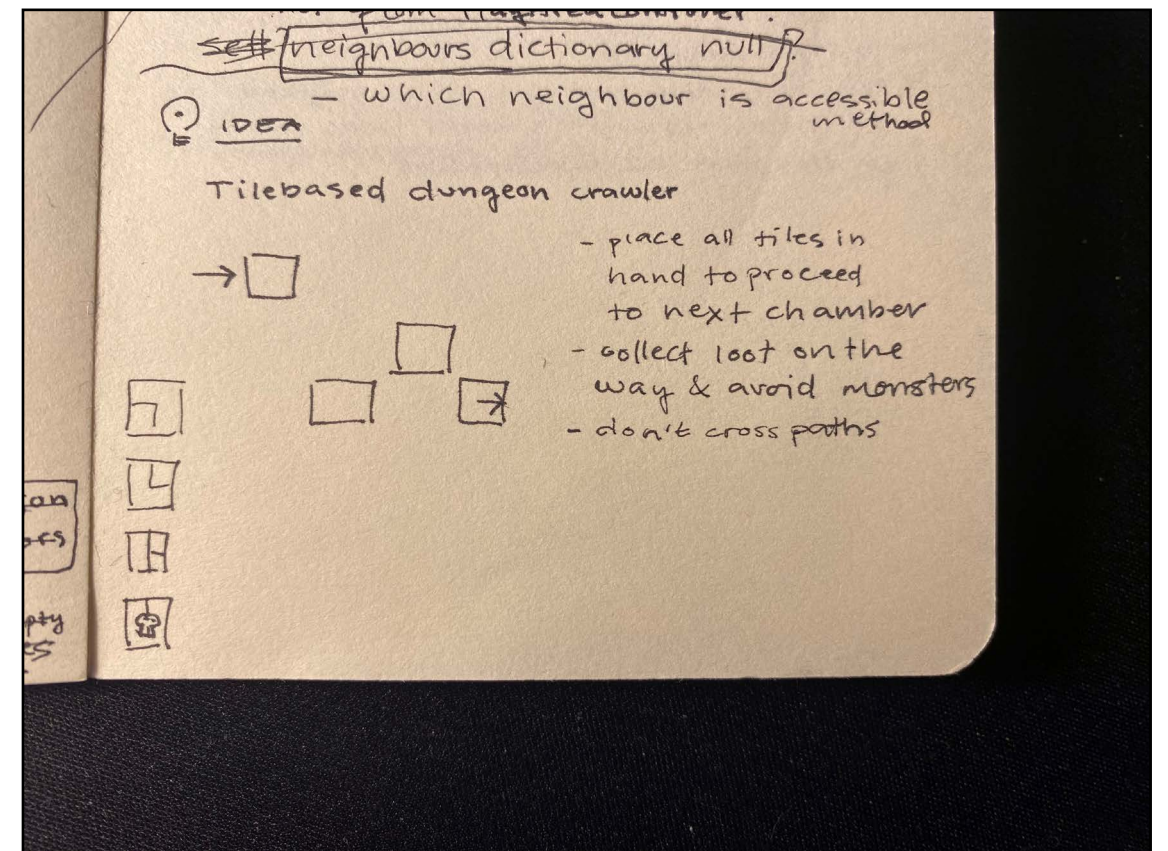 neighbours dictionary null?
- which neighbour is accessible
method
IDEA
Tilebased dungeon crawler
- place all tiles in
hand to proceed
to next chamber
- collect loot on the
way & avoid monsters
- don't cross paths